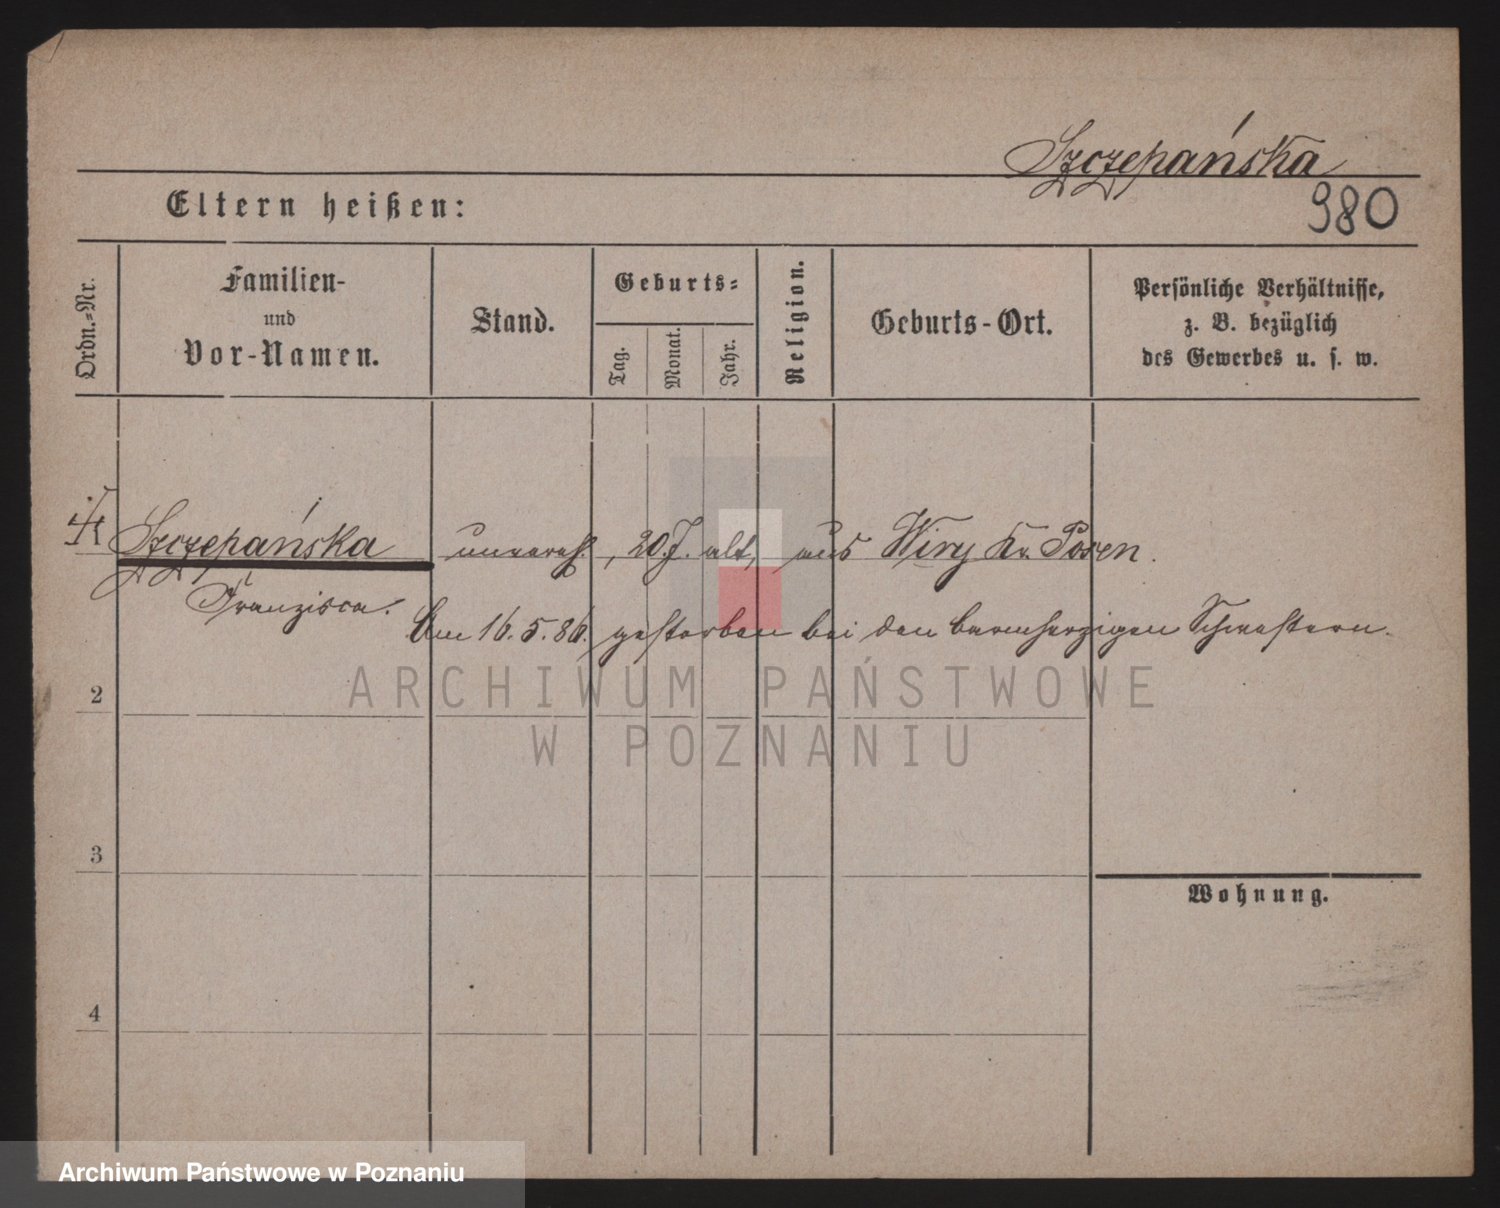 Szczepańska
Eltern heißen:
980
Ordn.-Nr.
Familien-
und
Vor-Namen.
Stand.
Geburts-
Tag.
Monat.
Jahr.
Religion.
Geburts-Ort.
Persönliche Verhältnisse,
z. B. bezüglich
des Gewerbes u. s. w.
1 Szczepańska unvereh, 20 J. alt, aus Wiry Kr. Posen.
Franzisca.
Am 16.5.86. gestorben bei den barmherzigen Schwestern.
ARCHIWUM PAŃSTWOWE
2
W POZNANIU
3
Wohnung.
4
Archiwum Państwowe w Poznaniu